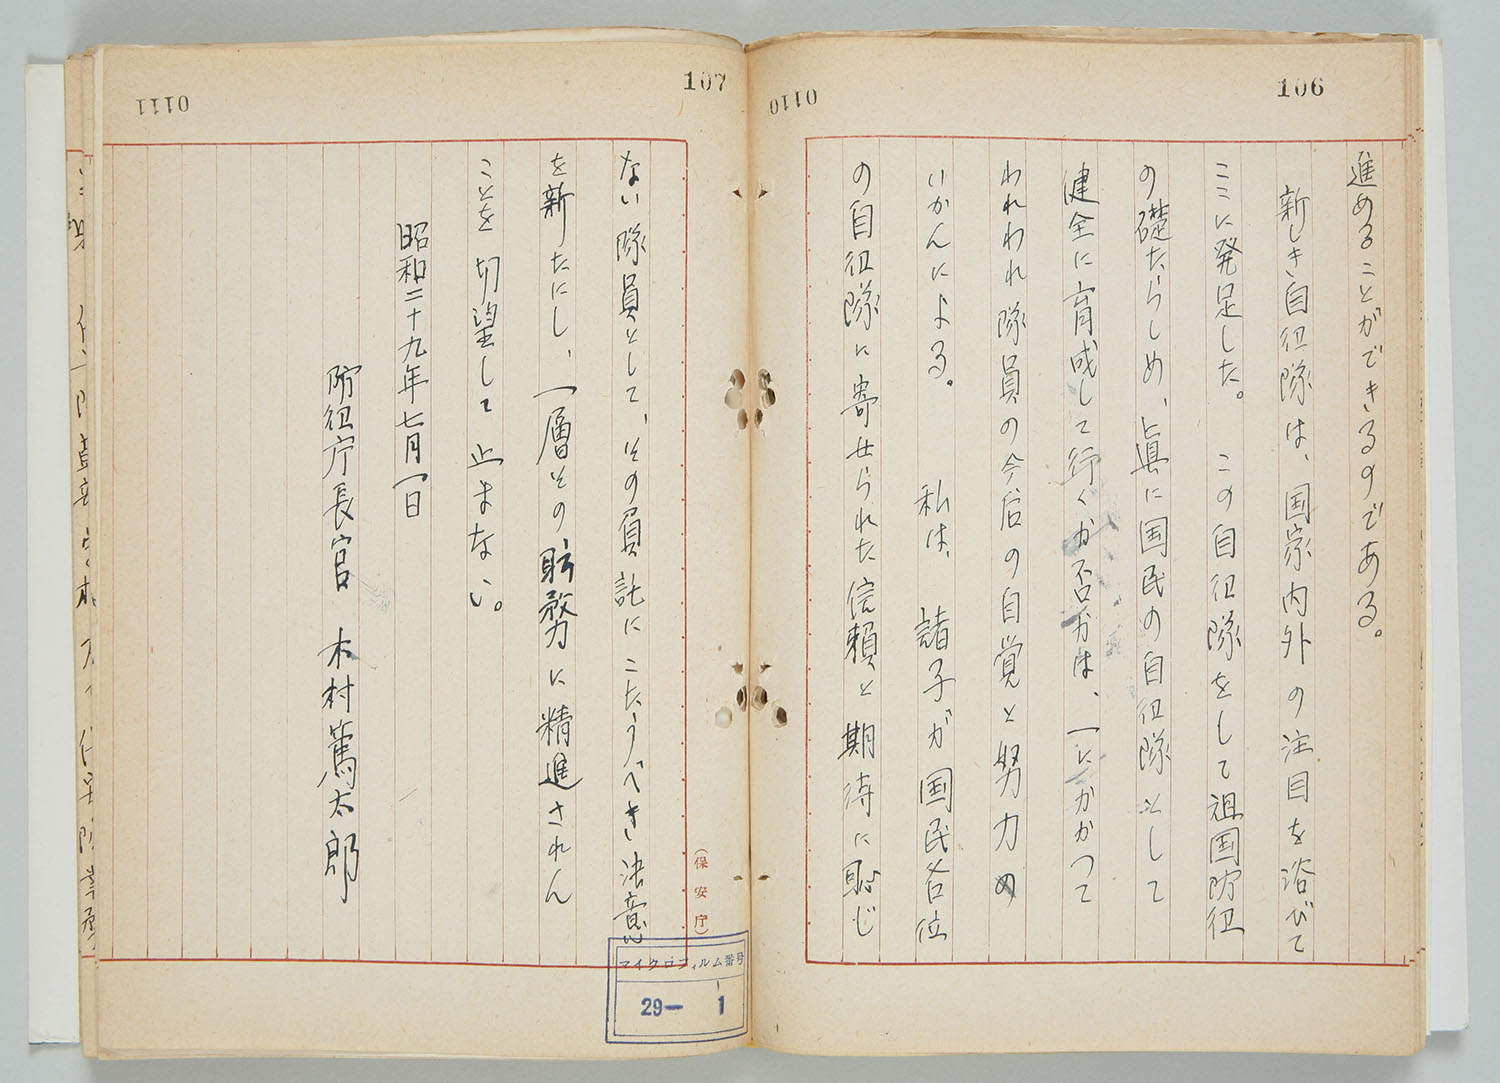 106
0110
進めることができるのである。
新しき自衛隊は、国家内外の注目を浴びて
ここに発足した。 この自衛隊をして祖国防衛
の礎たらしめ、真に国民の自衛隊として
健全に育成して行くか否かは、一にかかつて
われわれ隊員の今后の自覚と努力の
いかんによる。 私は、諸子が国民各位
の自衛隊に寄せられた信頼と期待に恥じ
107
0111
ない隊員として、その負託にこたうべき決意
を新たにし、一層その職務に精進されん
ことを切望して止まない。
昭和二十九年七月一日
防衛庁長官 木村篤太郎
(保安庁)
マイクロフィルム番号
29— 1